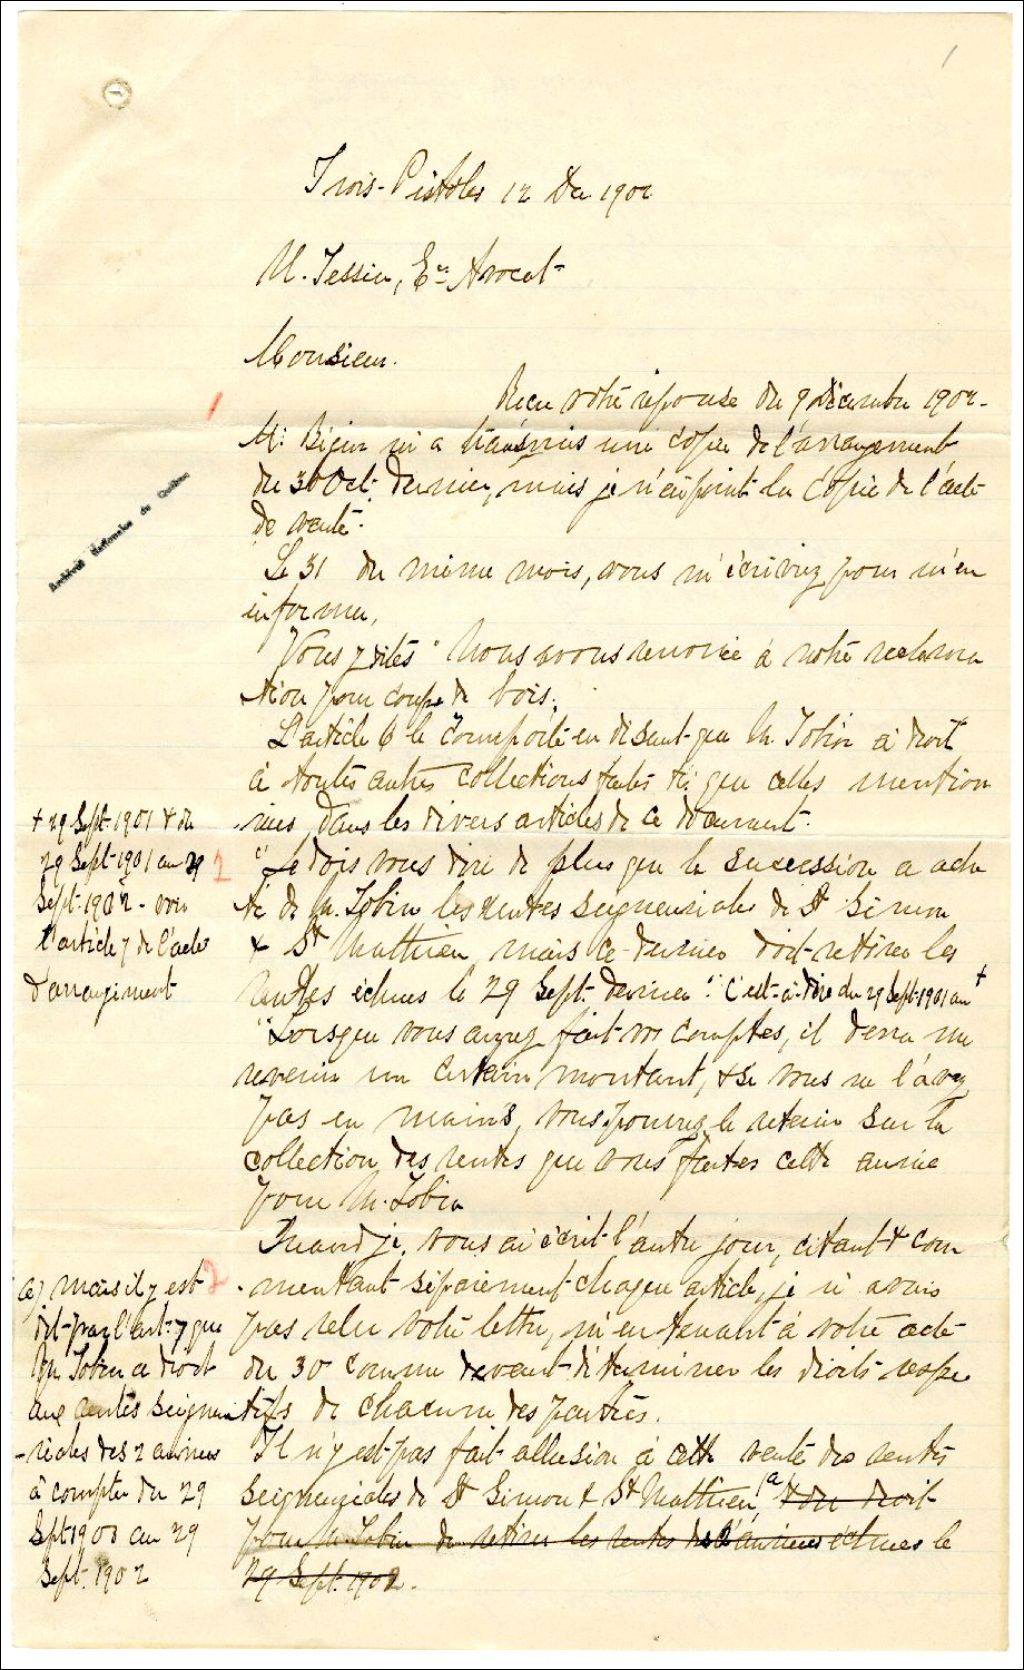 1
Trois-Pistoles 12 Dec 1902
M. Tessier, Er Avocat
Monsieur.
Recu votre reponse du 9 décembre 1902-
1
Mr Bégin m'a transmis une copie de l'arrangement
du 30 Oct. dernier, mais je n'ai point la copie de l'acte
de vente.
Archives Nationales du Québec
Le 31 du même mois, vous m'écriviez pour m'en
informer,
Vous y dites " Nous avons renoncé à notre reclama
tion pour coupe de bois.
L'article 6 le comporte en disant que M. Tobin a droit
à toutes autres collections faites que celles mention
-nées dans les divers articles de ce document.
2
"Je dois vous dire de plus que la succession a ache
té de M. Tobin les rentes seigneuriales de St Simon
& St Mathieu, mais ce dernier doit retirer les
rentes échues le 29 Sept. dernier." C'est-à-dire du 29 Sept. 1901 au +
+ 29 Sept. 1901 & du
29 Sept 1901 au 29
Sept. 1902 - voir
l'article 7 de l'acte
d'arrangement
"Lorsque vous aurez fait vos comptes, il devra me
revenir un certain montant, & si vous ne l'avez
pas en mains, vous pourrez le retenir sur la
collection des rentes que vous faites cette année
pour M. Tobin
Quand je vous ai écrit l'autre jour, citant & com
-mentant séparément chaque article, je n'avais
pas relu votre lettre, m'en tenant à votre acte
du 30 comme devant déterminer les droits respec
tifs de chacune des parties.
Il n'y est pas fait allusion à cette vente des rentes
seigneuriales de St Simon & St Mathieu, a & du droit
pour M. Tobin de retirer les rentes des 2 années échues le
29 Sept. 1902.
2
a) mais il y est
dit par l'art. 7 que
M. Tobin a droit
aux rentes seigneu
-riales des 2 années
à compter du 29
Sept 1900 au 29
Sept. 1902